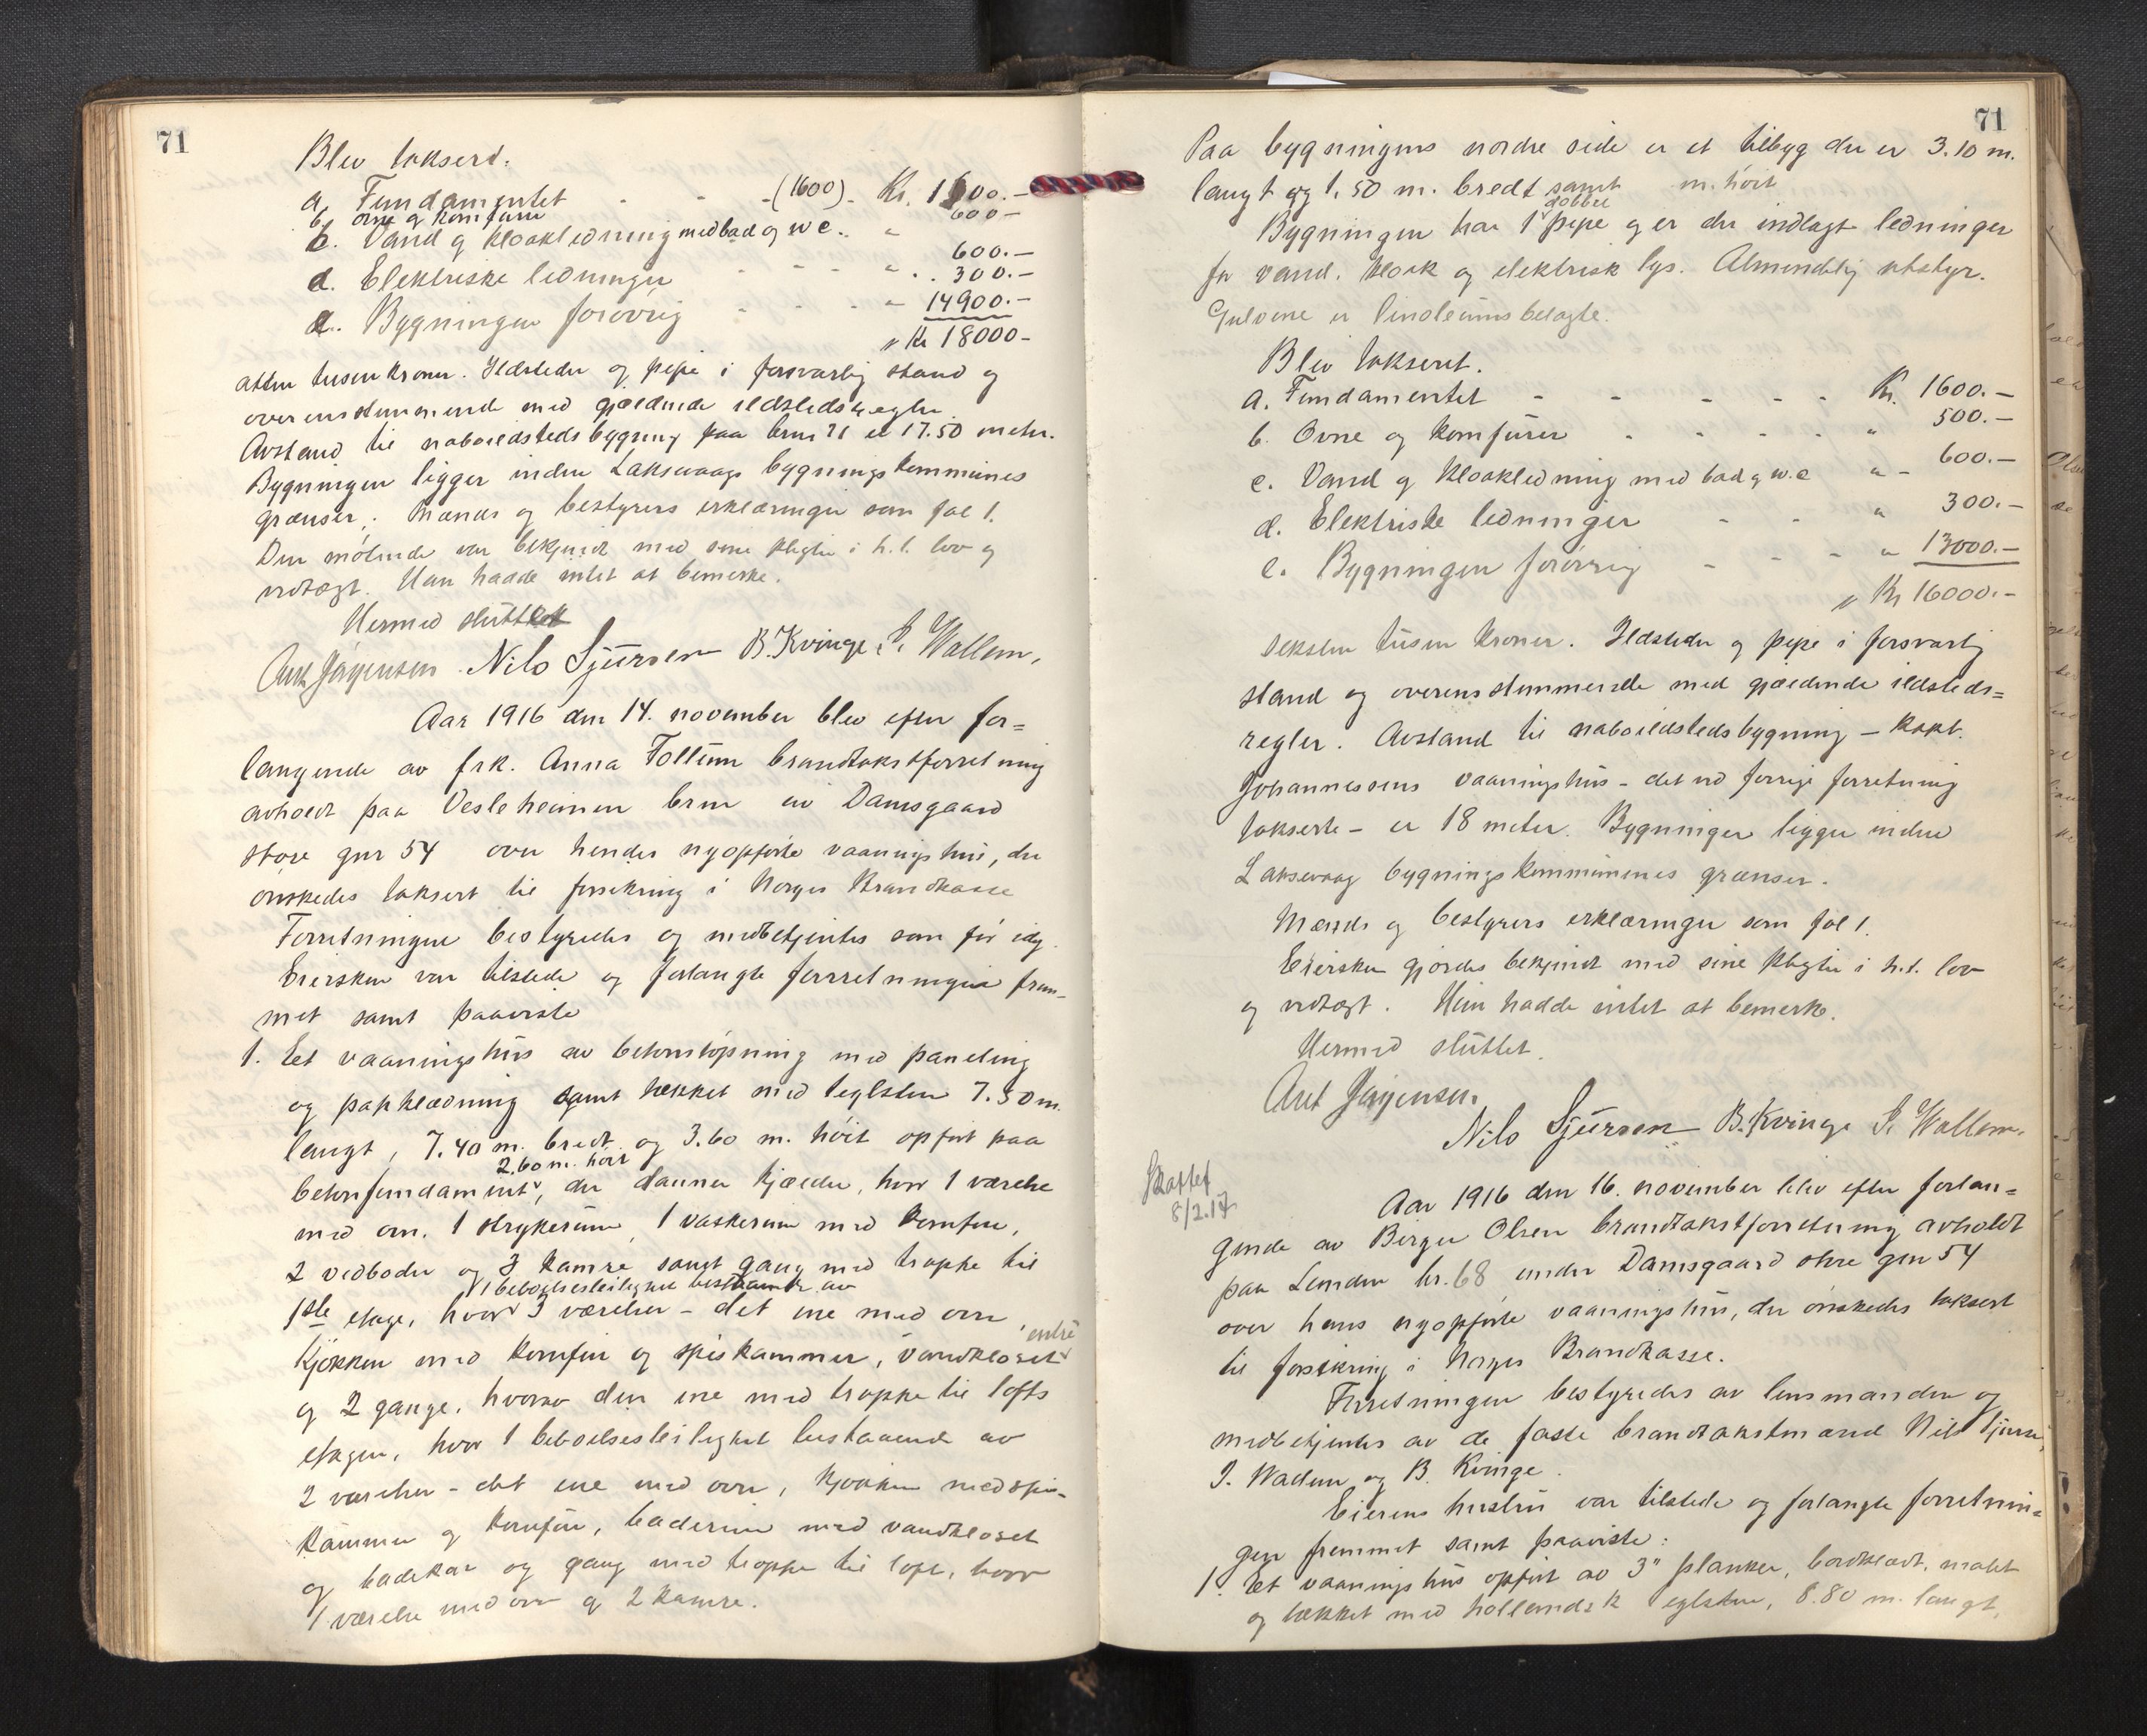 71
Blev taksert.
a. Fundamentet - - - (1600) - Kr. 1600.-
b. ovne og komfurer 600-
c. Vand og kloakledning med bad og w c. " 600.-
d. Elektriske ledninger - - - " 300.-
e. Bygningen forøvrig - - - " 14900.-
Kr 18000-
atten tusen kroner. Ildsteder og pipe i forsvarlig stand og
overensstemmende med gjældende ildstedsregler.
Avstand til naboildstedsbygning paa brnr 71 er 17.50 meter.
Bygningen ligger inden Laksevaags bygningskommunes
grænser. Mænds og bestyrers erklæringer som fol 1.
Den møtende var bekjendt med sine pligter i h.t. lov og
vedtægt. Han hadde intet at bemerke.
Hermed sluttet
Ant Jørgensen. Nils Sjursen B. Kvinge. I. Wallem.
Aar 1916 den 14. november blev efter for=
langende av frk. Anna Follum brandtakstforretning
avholdt paa Vesleheimen brnr av Damsgaard
store gnr 54 over hendes nyopførte vaaningshus, der
ønskedes taksert til forsikring i Norges Brandkasse
Forretningen bestyredes og medbetjentes som før idg.
Eiersken var tilstede og forlangte forretningen frem-
met samt paaviste
1. Et vaaningshus av betonstøpning med paneling
og papklædning samt tækket med teglsten 7.50 m.
langt, 7.40 m. bredt og 3.60 m. høit opført paa
2.60 m. høit
betonfundament, der danner kjælder, hvor 1 værelse
med ovn, 1 strykerum, 1 vaskerum med komfur,
2 vedboder og 3 kamre samt gang med trappe til
1 beboelsesleilighet bestaaende av
1ste etage, hvor 3 værelser - det ene med ovn,
entre
Kjøkken med komfur og spiskammer, vandkloset
og 2 gange, hvorav den ene med trappe til lofts
etagen, hvor 1 beboelsesleilighet bestaaende av
2 værelser - det ene med ovn, kjøkken med spis-
kammer og komfur, baderum med vandkloset
og badekar og gang med trappe til loft, hvor
1 værelse med ovn og 2 kamre.
71
Paa bygningens nordre side er et tilbyg der er 3.10 m.
langt og 1.50 m. bredt samt m. høit
dobbel
Bygningen har 1 pipe og er der indlagt ledninger
for vand, kloak og elektrisk lys. Almindelig utstyr.
Gulvene er linoleumsbelagte.
Blev taksert.
a. Fundamentet - - - - - Kr. 1600.-
b. Ovne og komfurer - - - - " 500.-
c. Vand og kloakledning med bad og w.c " - 600.-
d. Elektriske ledninger - - " 300.-
e. Bygningen forøvrig - - - " 13000.-
Kr 16000.-
seksten tusen kroner. Ildsteder og pipe i forsvarlig
stand og overensstemmende med gjældende ildsteds=
regler. Avstand til naboildstedsbygning - kapt.
Johannessens vaaningshus - det ved forrige forretning
takserte - er 18 meter. Bygningen ligger inden
Laksevaag bygningskommunenes grænser.
Mænds og bestyrers erklæringer som fol 1.
Eiersken gjordes bekjendt med sine pligter i h.t. lov
og vedtægt. Hun hadde intet at bemerke.
Hermed sluttet.
Ant Jørgensen.
Nils Sjursen B. Kvinge I. Wallem.
8/2.17
Aar 1916 den 16. november blev efter forlan=
gende av Birger Olsen brandtakstforretning avholdt
paa Lunden br. 68 under Damsgaard store gnr 54
over hans nyopførte vaaningshus, der ønskedes taksert
til forsikring i Norges Brandkasse.
Forretningen bestyredes av lensmanden og
medbetjentes av de faste brandtakstmænd Nils Sjursen,
I. Wallem og B. Kvinge.
Eierens hustru var tilstede og forlangte forretnin=
gen fremmet samt paaviste:
1. Et vaaningshus opført av 3" planker, bordklædt, malet
og tækket med hollandsk teglsten, 8.80 m. langt,